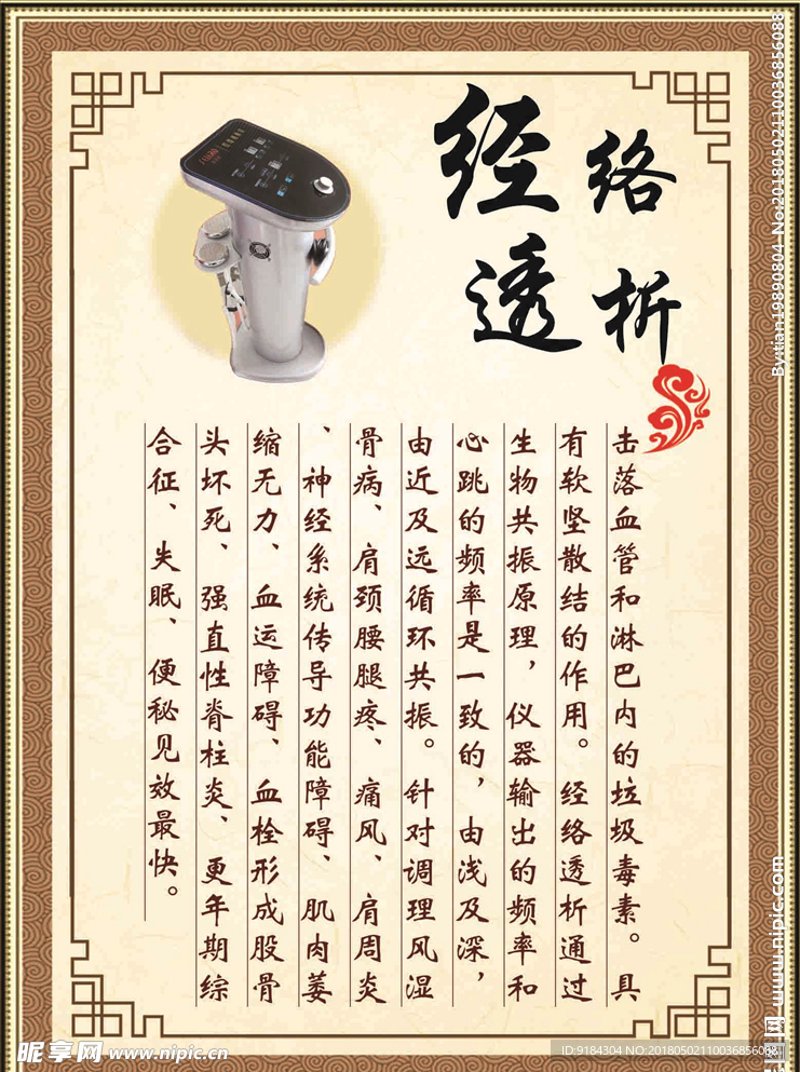 经络
透析
击落血管和淋巴内的垃圾毒素。具
有软坚散结的作用。经络透析通过
生物共振原理，仪器输出的频率和
心跳的频率是一致的，由浅及深，
由近及远循环共振。针对调理风湿
骨病、肩颈腰腿疼、痛风、肩周炎
、神经系统传导功能障碍、肌肉萎
缩无力、血运障碍、血栓形成股骨
头坏死、强直性脊柱炎、更年期综
合征、失眠、便秘见效最快。
By:tian19890804 No:20180502110036856088
昵享网 www.nipic.com
昵享网 www.nipic.cn
ID:9184304 NO:20180502110036856088